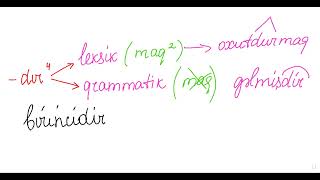 leksik (maq²) → oxutdurmaq
-dır⁴
qrammatik (maq) gəlmişdir
birincidir